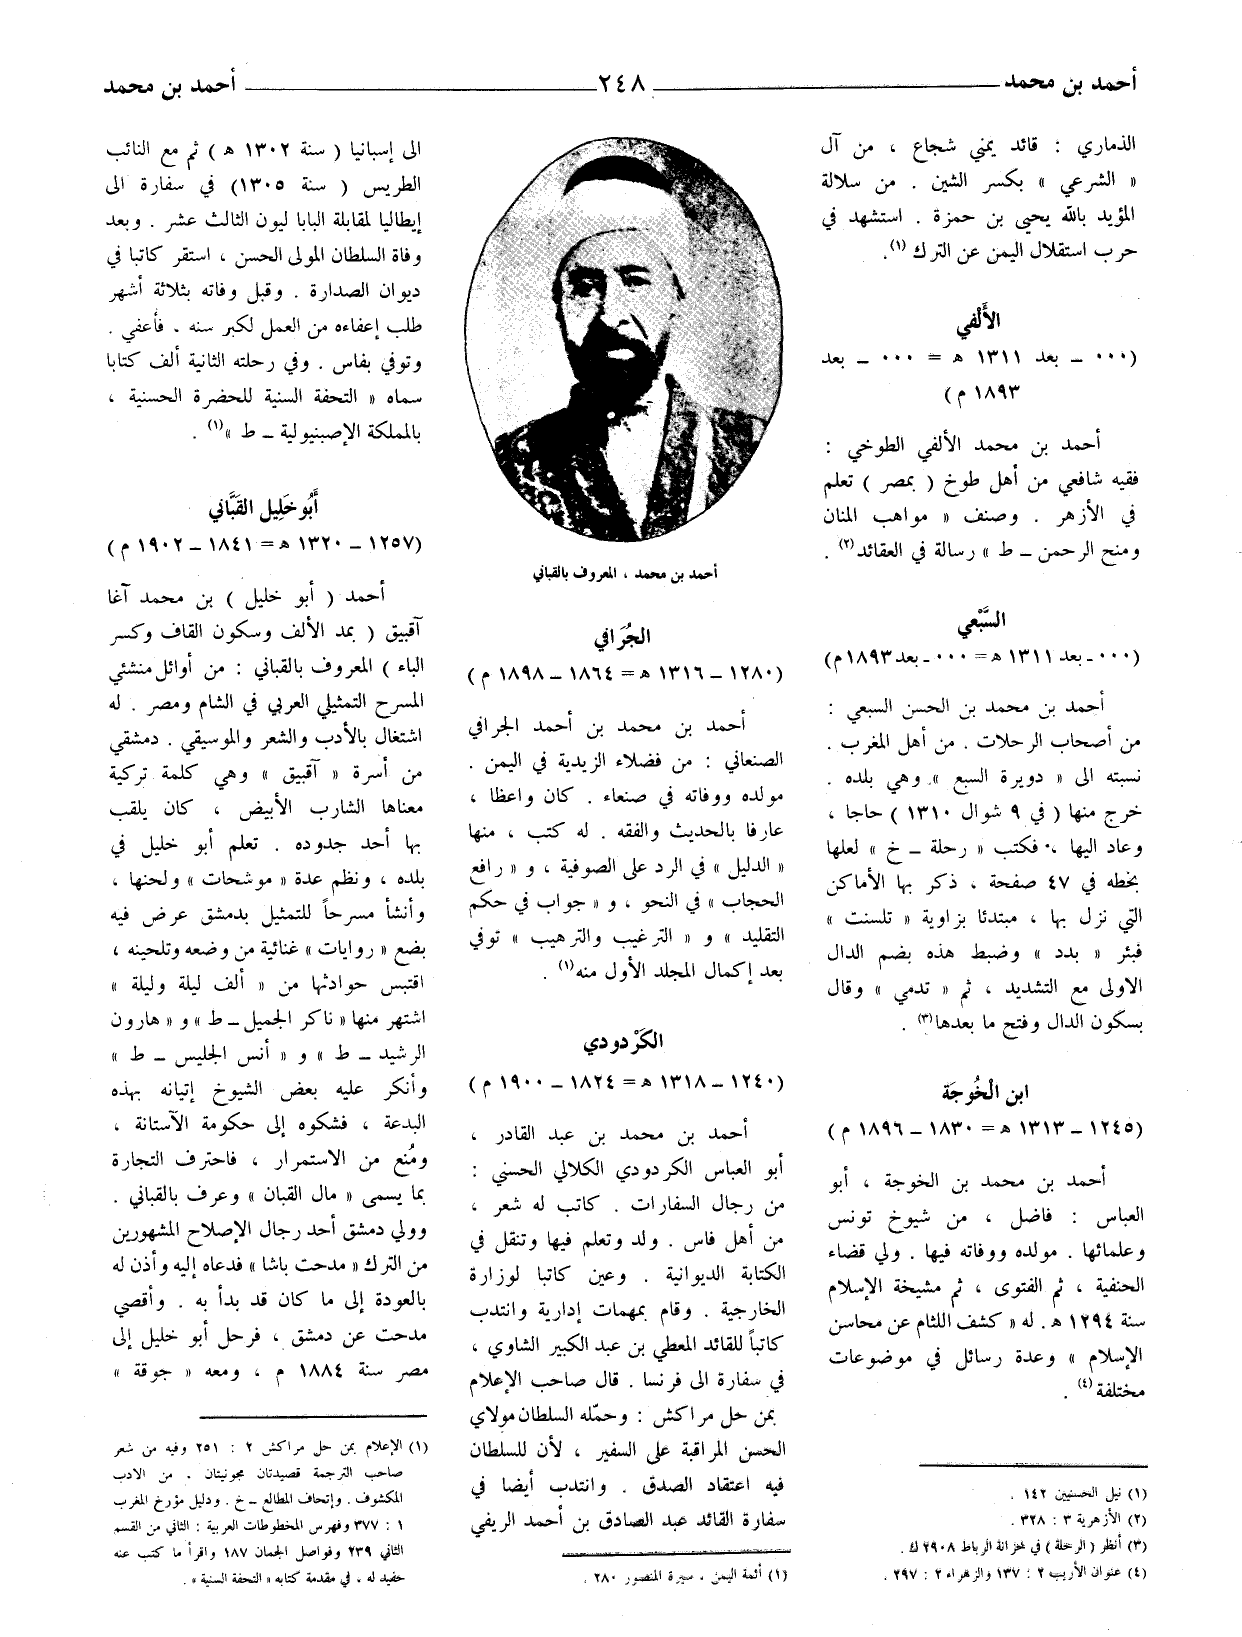 أحمد بن محمد
٢٤٨
أحمد بن محمد
الذماري : قائد يمني شجاع ، من آل
« الشرعي » بكسر الشين . من سلالة
المؤيد بالله يحيى بن حمزة . استشهد في
حرب استقلال اليمن عن الترك (١).
الأَلْفي
(٠٠٠ ـ بعد ١٣١١ ه = ٠٠٠ ـ بعد
١٨٩٣ م)
أحمد بن محمد الألفي الطوخي :
فقيه شافعي من أهل طوخ ( بمصر ) تعلم
في الأزهر . وصنف « مواهب المنان
ومنح الرحمن ـ ط » رسالة في العقائد(٢) .
السَّبْعي
(٠٠٠ ـ بعد ١٣١١ ه = ٠٠٠ ـ بعد ١٨٩٣م)
أحمد بن محمد بن الحسن السبعي :
من أصحاب الرحلات . من أهل المغرب .
نسبته الى « دويرة السبع » وهي بلده .
خرج منها ( في ٩ شوال ١٣١٠ ) حاجا ،
وعاد اليها ، فكتب « رحلة ـ خ » لعلها
بخطه في ٤٧ صفحة ، ذكر بها الأماكن
التي نزل بها ، مبتدئا بزاوية « تلسنت »
فبئر « بدد » وضبط هذه بضم الدال
الاولى مع التشديد ، ثم « تدمي » وقال
بسكون الدال وفتح ما بعدها(٣) .
ابن الخُوجَة
(١٢٤٥ ـ ١٣١٣ ه = ١٨٣٠ ـ ١٨٩٦ م)
أحمد بن محمد بن الخوجة ، أبو
العباس : فاضل ، من شيوخ تونس
وعلمائها . مولده ووفاته فيها . ولي قضاء
الحنفية ، ثم الفتوى ، ثم مشيخة الإسلام
سنة ١٢٩٤ ه . له « كشف اللثام عن محاسن
الإسلام » وعدة رسائل في موضوعات
مختلفة(٤) .
(١) نيل الحسنيين ١٤٢ .
(٢) الأزهرية ٣ : ٣٢٨ .
(٣) أنظر ( الرحلة ) في خزانة الرباط ٢٩٠٨ ك .
(٤) عنوان الأريب ٢ : ١٣٧ والزهراء ٢ : ٢٩٧ .
أحمد بن محمد ، المعروف بالقباني
الجُرَافي
(١٢٨٠ ـ ١٣١٦ ه = ١٨٦٤ ـ ١٨٩٨ م)
أحمد بن محمد بن أحمد الجرافي
الصنعاني : من فضلاء الزيدية في اليمن .
مولده ووفاته في صنعاء . كان واعظا ،
عارفا بالحديث والفقه . له كتب ، منها
« الدليل » في الرد على الصوفية ، و « رافع
الحجاب » في النحو ، و « جواب في حكم
التقليد » و « الترغيب والترهيب » توفي
بعد إكمال المجلد الأول منه(١) .
الكَرْدودي
(١٢٤٠ ـ ١٣١٨ ه = ١٨٢٤ ـ ١٩٠٠ م)
أحمد بن محمد بن عبد القادر ،
أبو العباس الكردودي الكلالي الحسني :
من رجال السفارات . كاتب له شعر ،
من أهل فاس . ولد وتعلم فيها وتنقل في
الكتابة الديوانية . وعين كاتبا لوزارة
الخارجية . وقام بمهمات إدارية وانتدب
كاتباً للقائد المعطي بن عبد الكبير الشاوي ،
في سفارة الى فرنسا . قال صاحب الإعلام
بمن حل مراكش : وحمّله السلطان مولاي
الحسن المراقبة على السفير ، لأن للسلطان
فيه اعتقاد الصدق . وانتدب أيضا في
سفارة القائد عبد الصادق بن أحمد الريفي
(١) أئمة اليمن ، سيرة المنصور ٢٨٠ .
الى إسبانيا ( سنة ١٣٠٢ ه ) ثم مع النائب
الطريس ( سنة ١٣٠٥) في سفارة الى
إيطاليا لمقابلة البابا ليون الثالث عشر . وبعد
وفاة السلطان المولى الحسن ، استقر كاتبا في
ديوان الصدارة . وقبل وفاته بثلاثة أشهر
طلب إعفاءه من العمل لكبر سنه . فأعفي .
وتوفي بفاس . وفي رحلته الثانية ألف كتابا
سماه « التحفة السنية للحضرة الحسنية ،
بالمملكة الإصبنيولية ـ ط »(١) .
أَبُو خَلِيل القَبَّاني
(١٢٥٧ ـ ١٣٢٠ ه = ١٨٤١ ـ ١٩٠٢ م)
أحمد ( أبو خليل ) بن محمد آغا
آقبيق ( بمد الألف وسكون القاف وكسر
الباء ) المعروف بالقباني : من أوائل منشئي
المسرح التمثيلي العربي في الشام ومصر . له
اشتغال بالأدب والشعر والموسيقي . دمشقي
من أسرة « آقبيق » وهي كلمة تركية
معناها الشارب الأبيض ، كان يلقب
بها أحد جدوده . تعلم أبو خليل في
بلده ، ونظم عدة « موشحات » ولحنها ،
وأنشأ مسرحاً للتمثيل بدمشق عرض فيه
بضع « روايات » غنائية من وضعه وتلحينه ،
اقتبس حوادثها من « ألف ليلة وليلة »
اشتهر منها « ناكر الجميل ـ ط » و « هارون
الرشيد ـ ط » و « أنس الجليس ـ ط »
وأنكر عليه بعض الشيوخ إتيانه بهذه
البدعة ، فشكوه إلى حكومة الآستانة ،
ومُنع من الاستمرار ، فاحترف التجارة
بما يسمى « مال القبان » وعرف بالقباني .
وولي دمشق أحد رجال الإصلاح المشهورين
من الترك « مدحت باشا » فدعاه إليه وأذن له
بالعودة إلى ما كان قد بدأ به . وأقصي
مدحت عن دمشق ، فرحل أبو خليل إلى
مصر سنة ١٨٨٤ م ، ومعه « جوقة »
(١) الإعلام بمن حل مراكش ٢ : ٢٥١ وفيه من شعر
صاحب الترجمة قصيدتان مجونيتان . من الادب
المكشوف . وإتحاف المطالع ـ خ . ودليل مؤرخ المغرب
١ : ٣٧٧ وفهرس المخطوطات العربية : الثاني من القسم
الثاني ٢٣٩ وفواصل الجمان ١٨٧ واقرأ ما كتب عنه
حفيد له ، في مقدمة كتابه « التحفة السنية » .